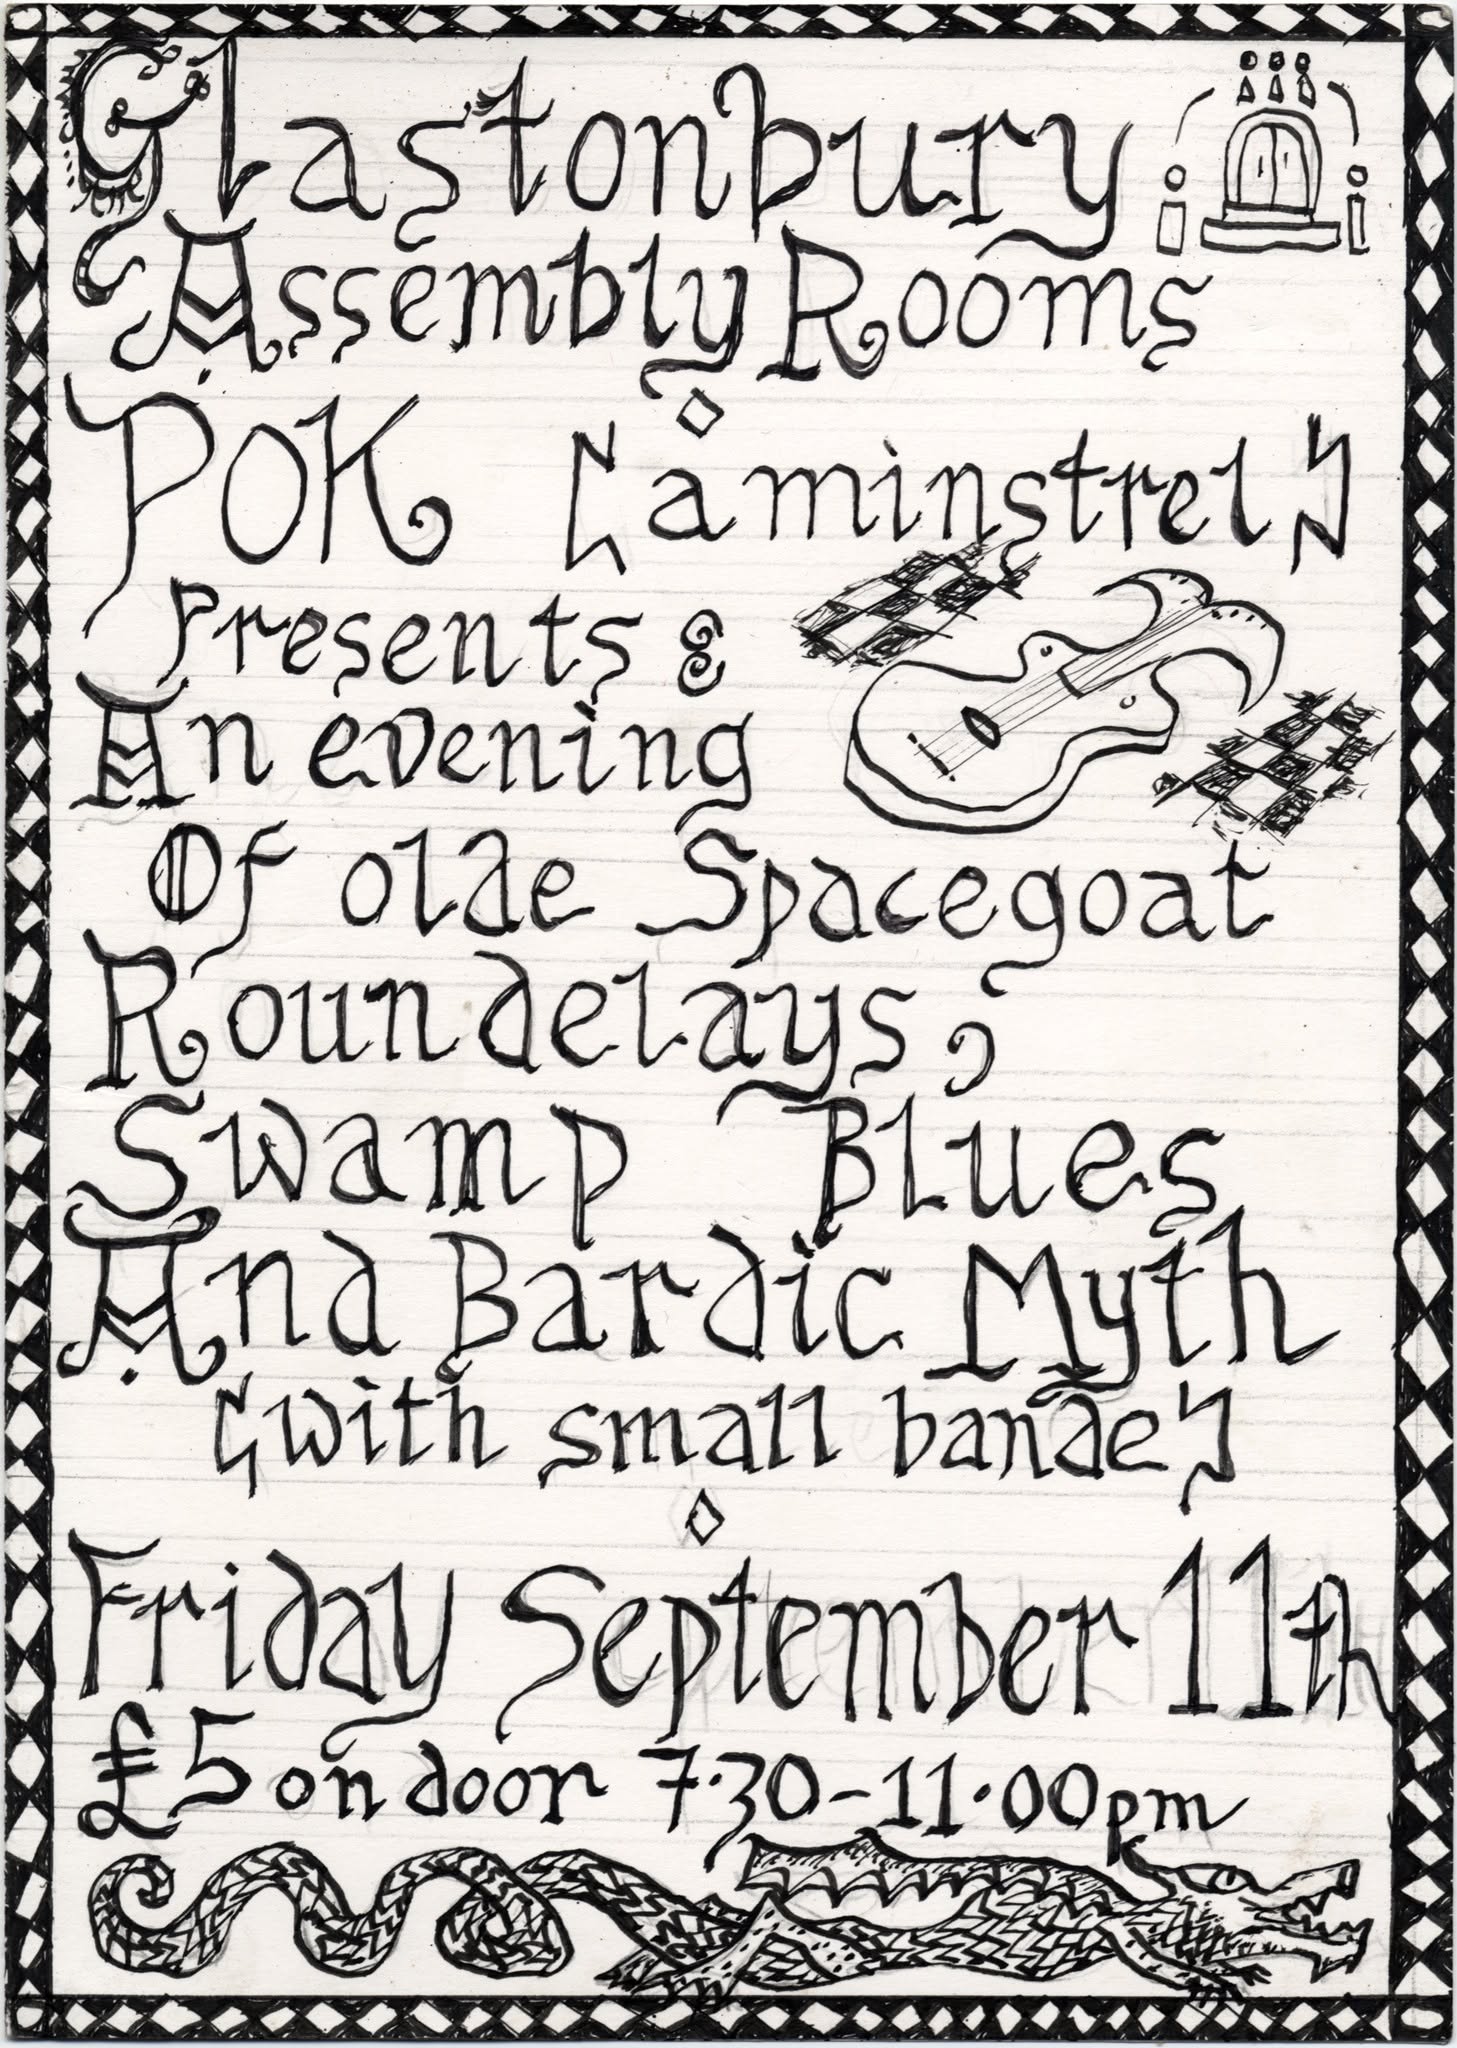 Glastonbury
Assembly Rooms
POK [a minstrel]
Presents :
An evening
Of olde Spacegoat
Roundelays,
Swamp Blues
And Bardic Myth
[with small bande]
Friday September 11th
£5 on door 7.30-11.00pm